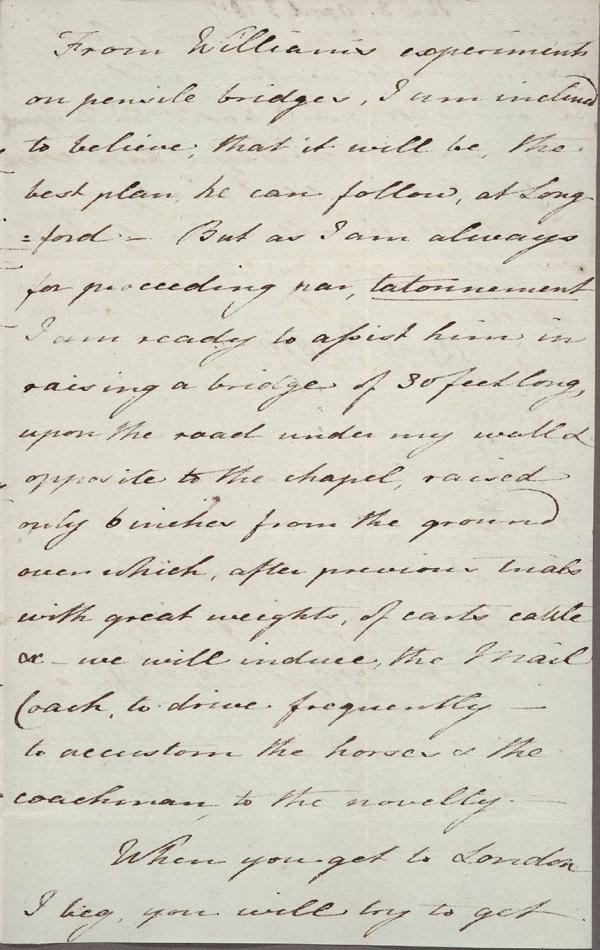 From Williams experiments
on pensile bridges, I am inclined
to believe, that it will be, the
best plan, he can follow, at Long
=ford - But as I am always
for proceeding par, tatonnement
I am ready to assist him in
raising a bridge of 30 feet long,
upon the road under my wall &
opposite to the chapel, raised
only 6 inches from the ground
over which, after previous trials
with great weights, of carts cattle
&c - we will induce, the Mail
Coach, to drive frequently —
to accustom the horses & the
coachman, to the novelty —
When you get to London
I beg, you will try to get